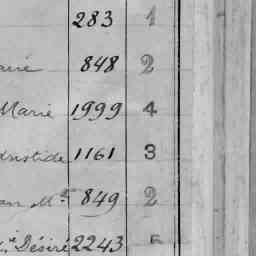 283 1
848 2
Marie 1999 4
Aristide 1161 3
849 2
Désiré 2243 5